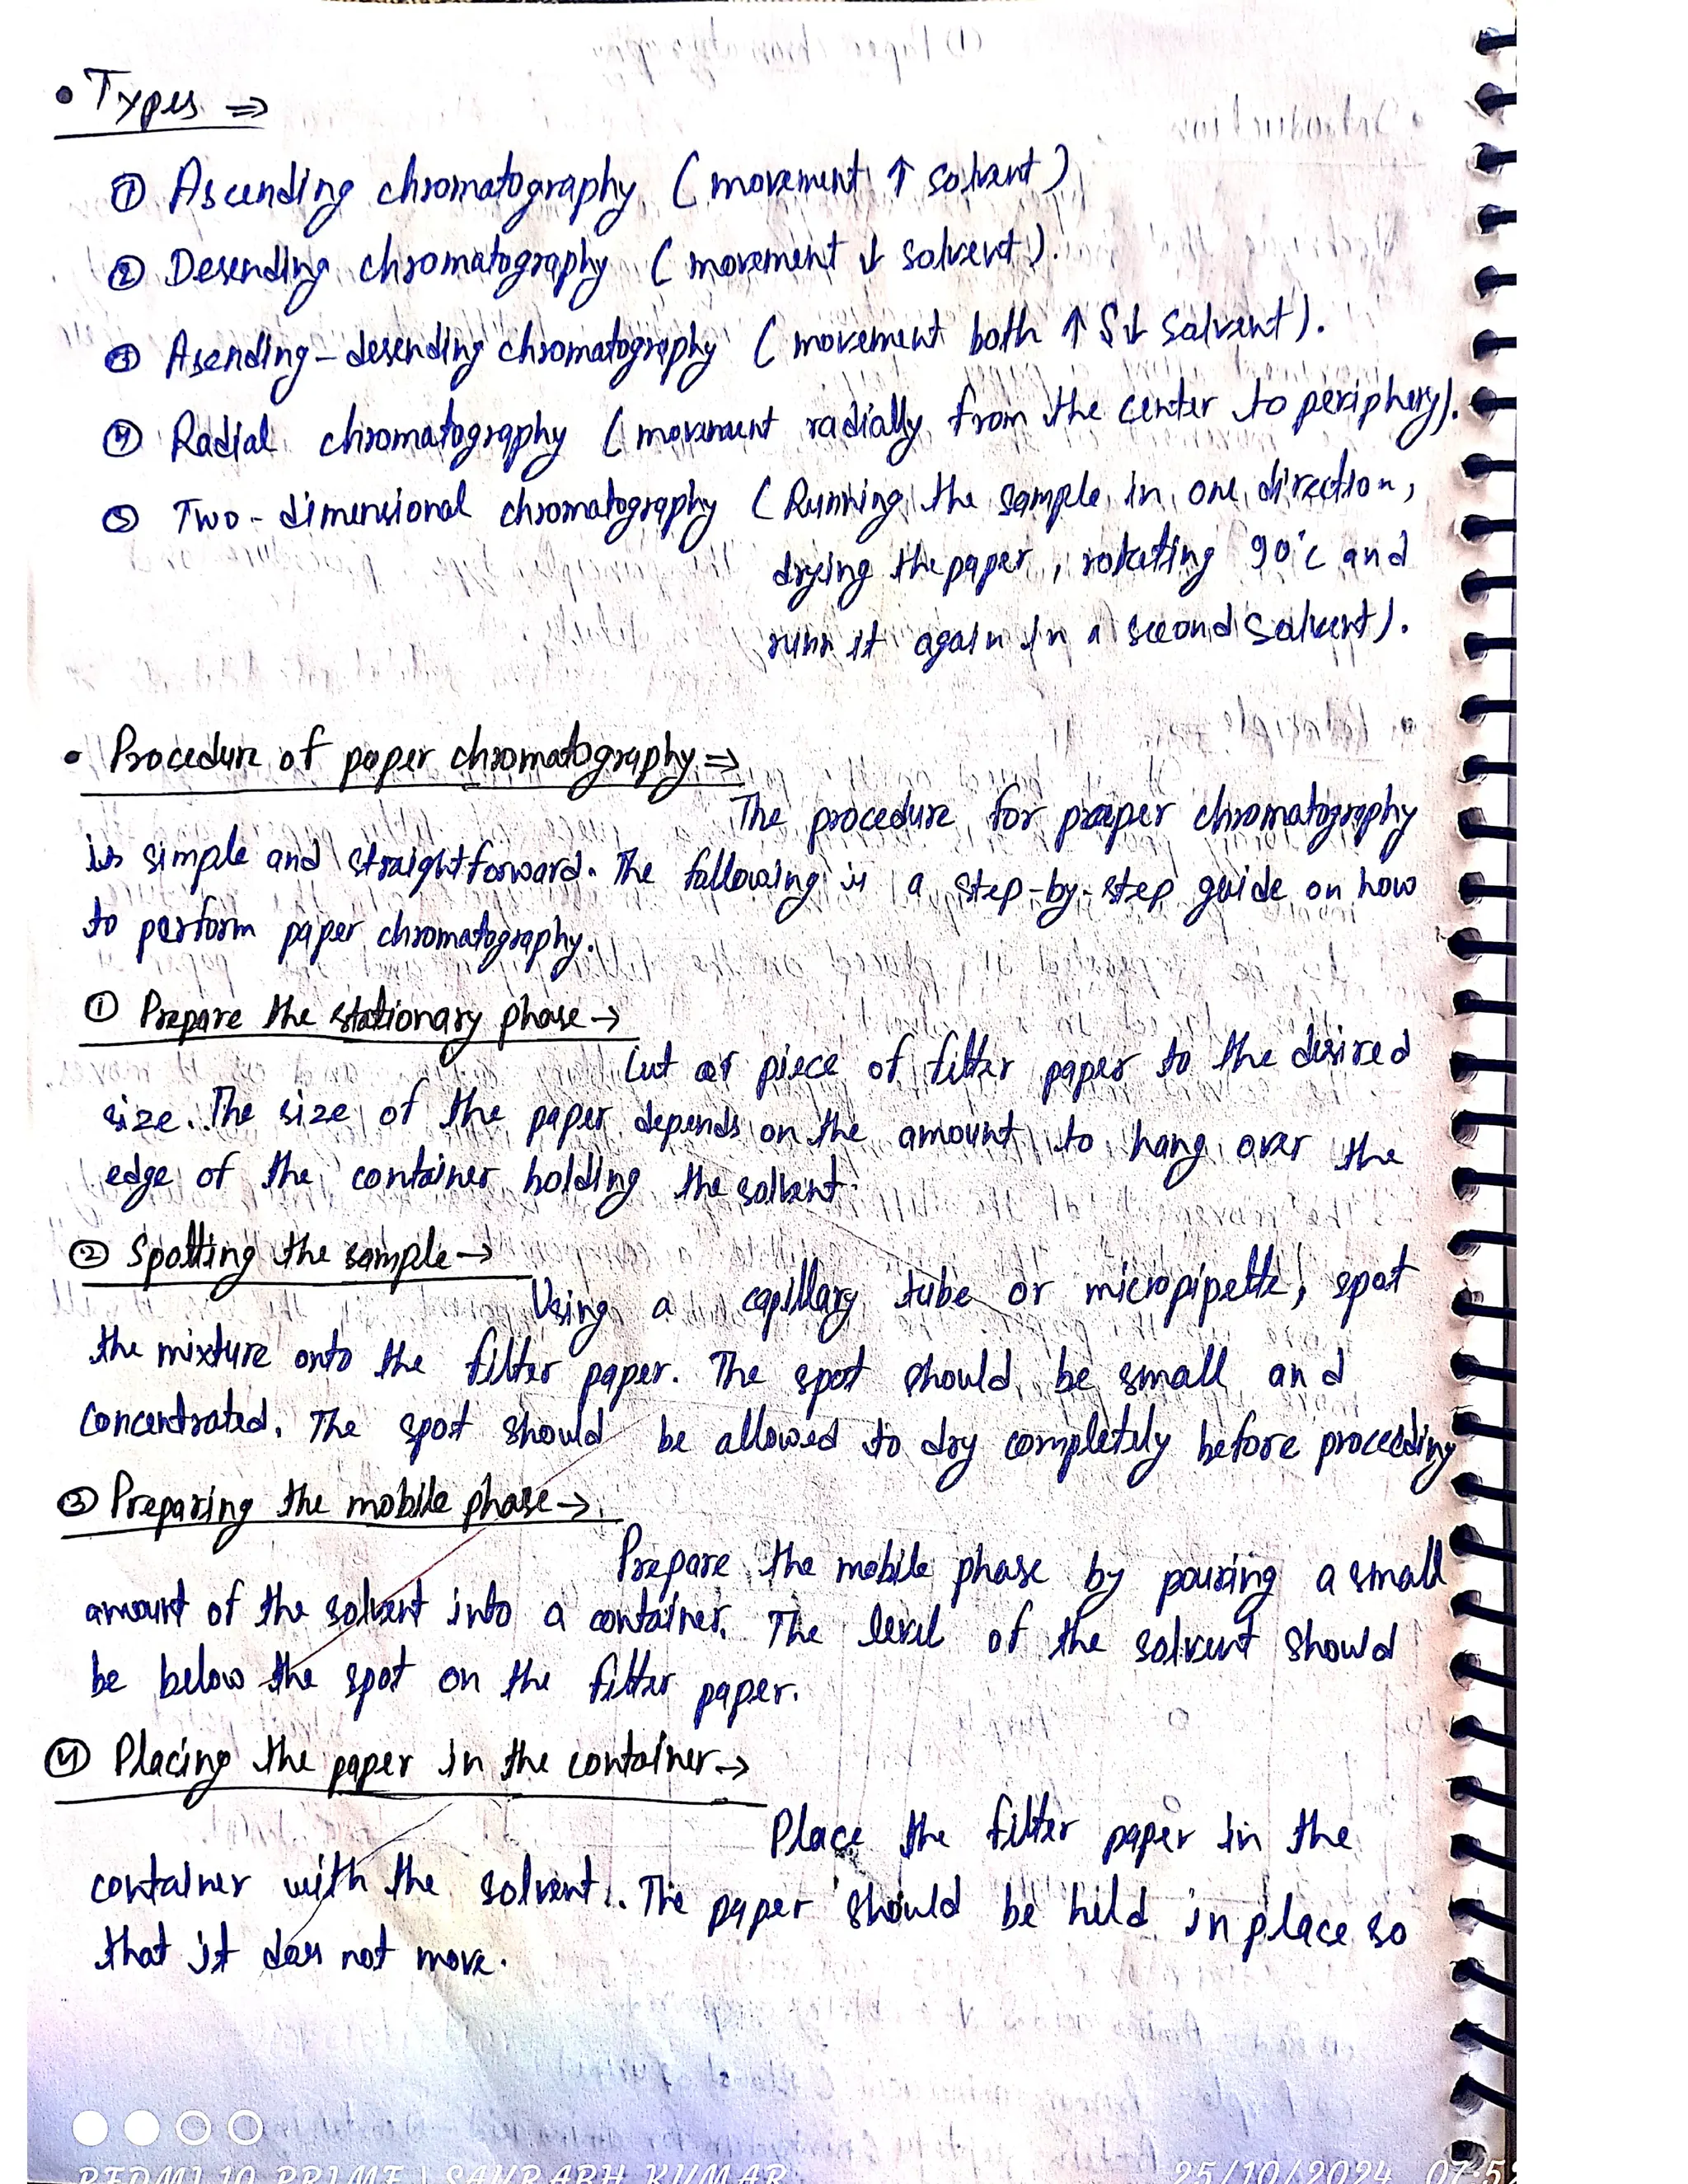 • Types ⇒
① Ascending chromatography (movement ↑ solvent)
② Desending chromatography (movement ↓ solvent).
③ Asending-desending chromatography (movement both ↑ & ↓ solvent).
④ Radial chromatography (movement radially from the center to periphery).
⑤ Two-dimensional chromatography (Running the sample in one direction,
drying the paper, rotating 90°c and
runn it again in a second solvent).
• Procedure of paper chromatography ⇒
The procedure for paper chromatography
is simple and straightforward. The following is a step-by-step guide on how
to perform paper chromatography.
① Prepare the stationary phase →
Cut a piece of filter paper to the desired
size. The size of the paper depends on the amount to hang over the
edge of the container holding the solvent.
② Spotting the sample →
Using a capillary tube or micropipette, spot
the mixture onto the filter paper. The spot should be small and
concentrated. The spot should be allowed to dry completely before proceeding
③ Preparing the mobile phase →
Prepare the mobile phase by pouring a small
amount of the solvent into a container. The level of the solvent should
be below the spot on the filter paper.
④ Placing the paper in the container →
Place the filter paper in the
container with the solvent. The paper should be held in place so
that it does not move.
REDMI 10 PRIME | SAURABH KUMAR
25/10/2024 07:52